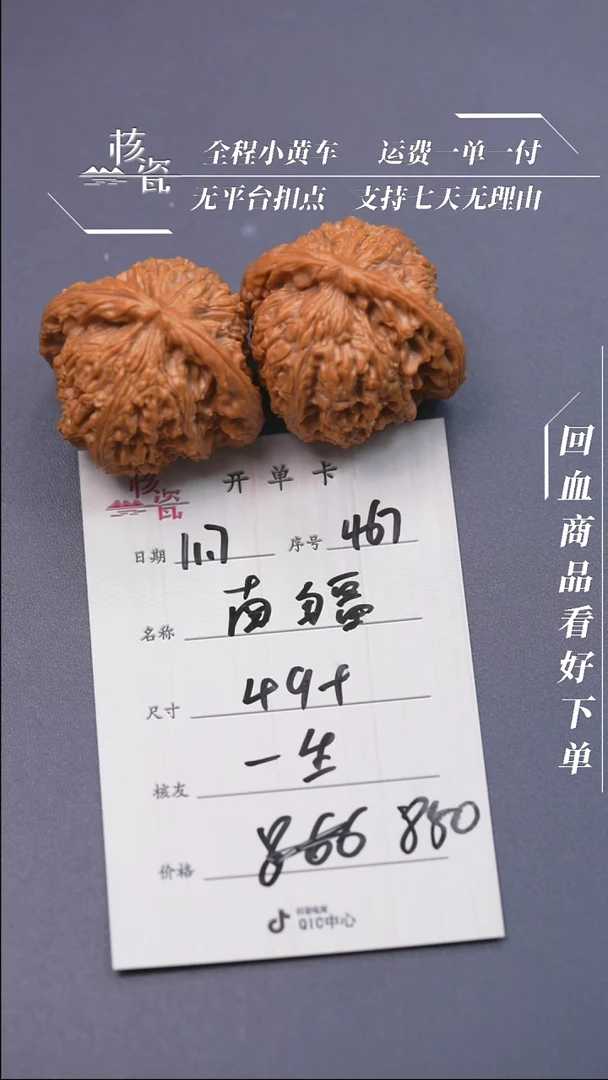 核瓷
全程小黄车 运费一单一付
无平台扣点 支持七天无理由
回血商品看好下单
核瓷
开单卡
日期 11.7 序号 467
名称 南疆
尺寸 49+
核友 一生
价格 866 880
抖音电商
QIC中心